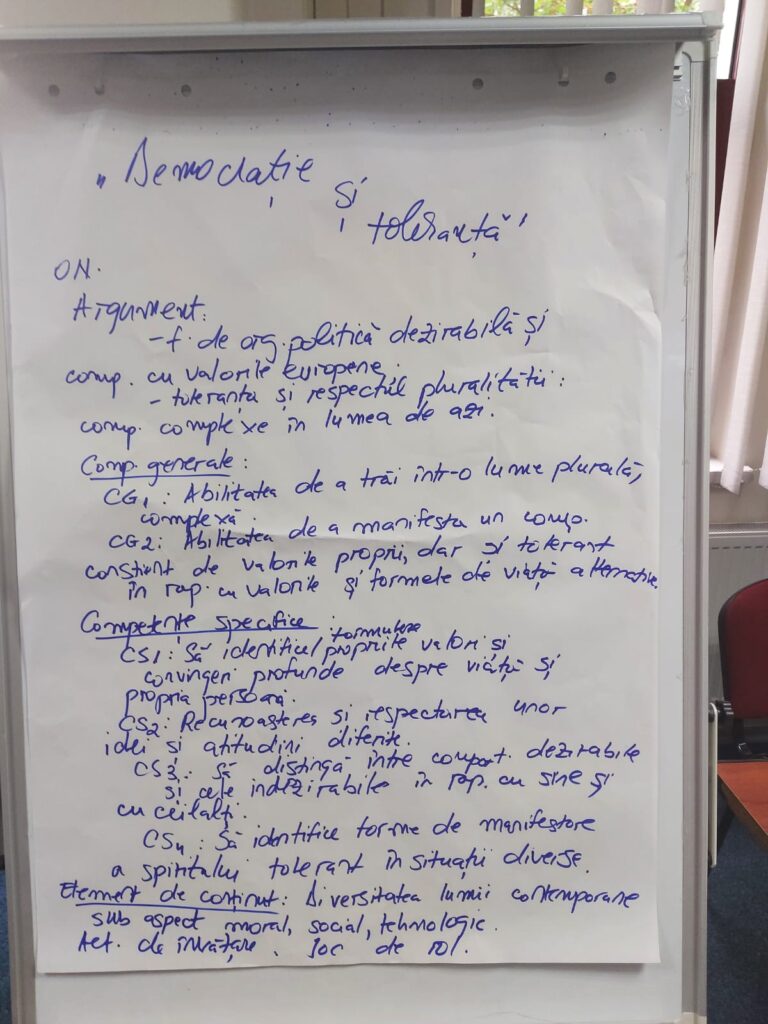 „Democrație
și
toleranță”
ON.
Argument:
- f. de org. politică dezirabilă și
comp. cu valorile europene.
- toleranța și respectul pluralității:
comp. complexe în lumea de azi.
Comp. generale:
CG1: Abilitatea de a trăi într-o lume plurală,
complexă.
CG2: Abilitatea de a manifesta un comp.
conștient de valorile proprii, dar și tolerant
în rap. cu valorile și formele de viață alternative.
Competențe specifice:
CS1: Să identifice/formuleze propriile valori și
convingeri profunde despre viață și
propria persoană.
CS2: Recunoașterea si respectarea unor
idei și atitudini diferite.
CS3: Să distingă între comport. dezirabile
si cele indezirabile în rap. cu sine și
cu ceilalți.
CS4: Să identifice forme de manifestare
a spiritului tolerant în situații diverse.
Element de conținut: Diversitatea lumii contemporane
sub aspect moral, social, tehnologic.
Act. de învățare. Joc de rol.